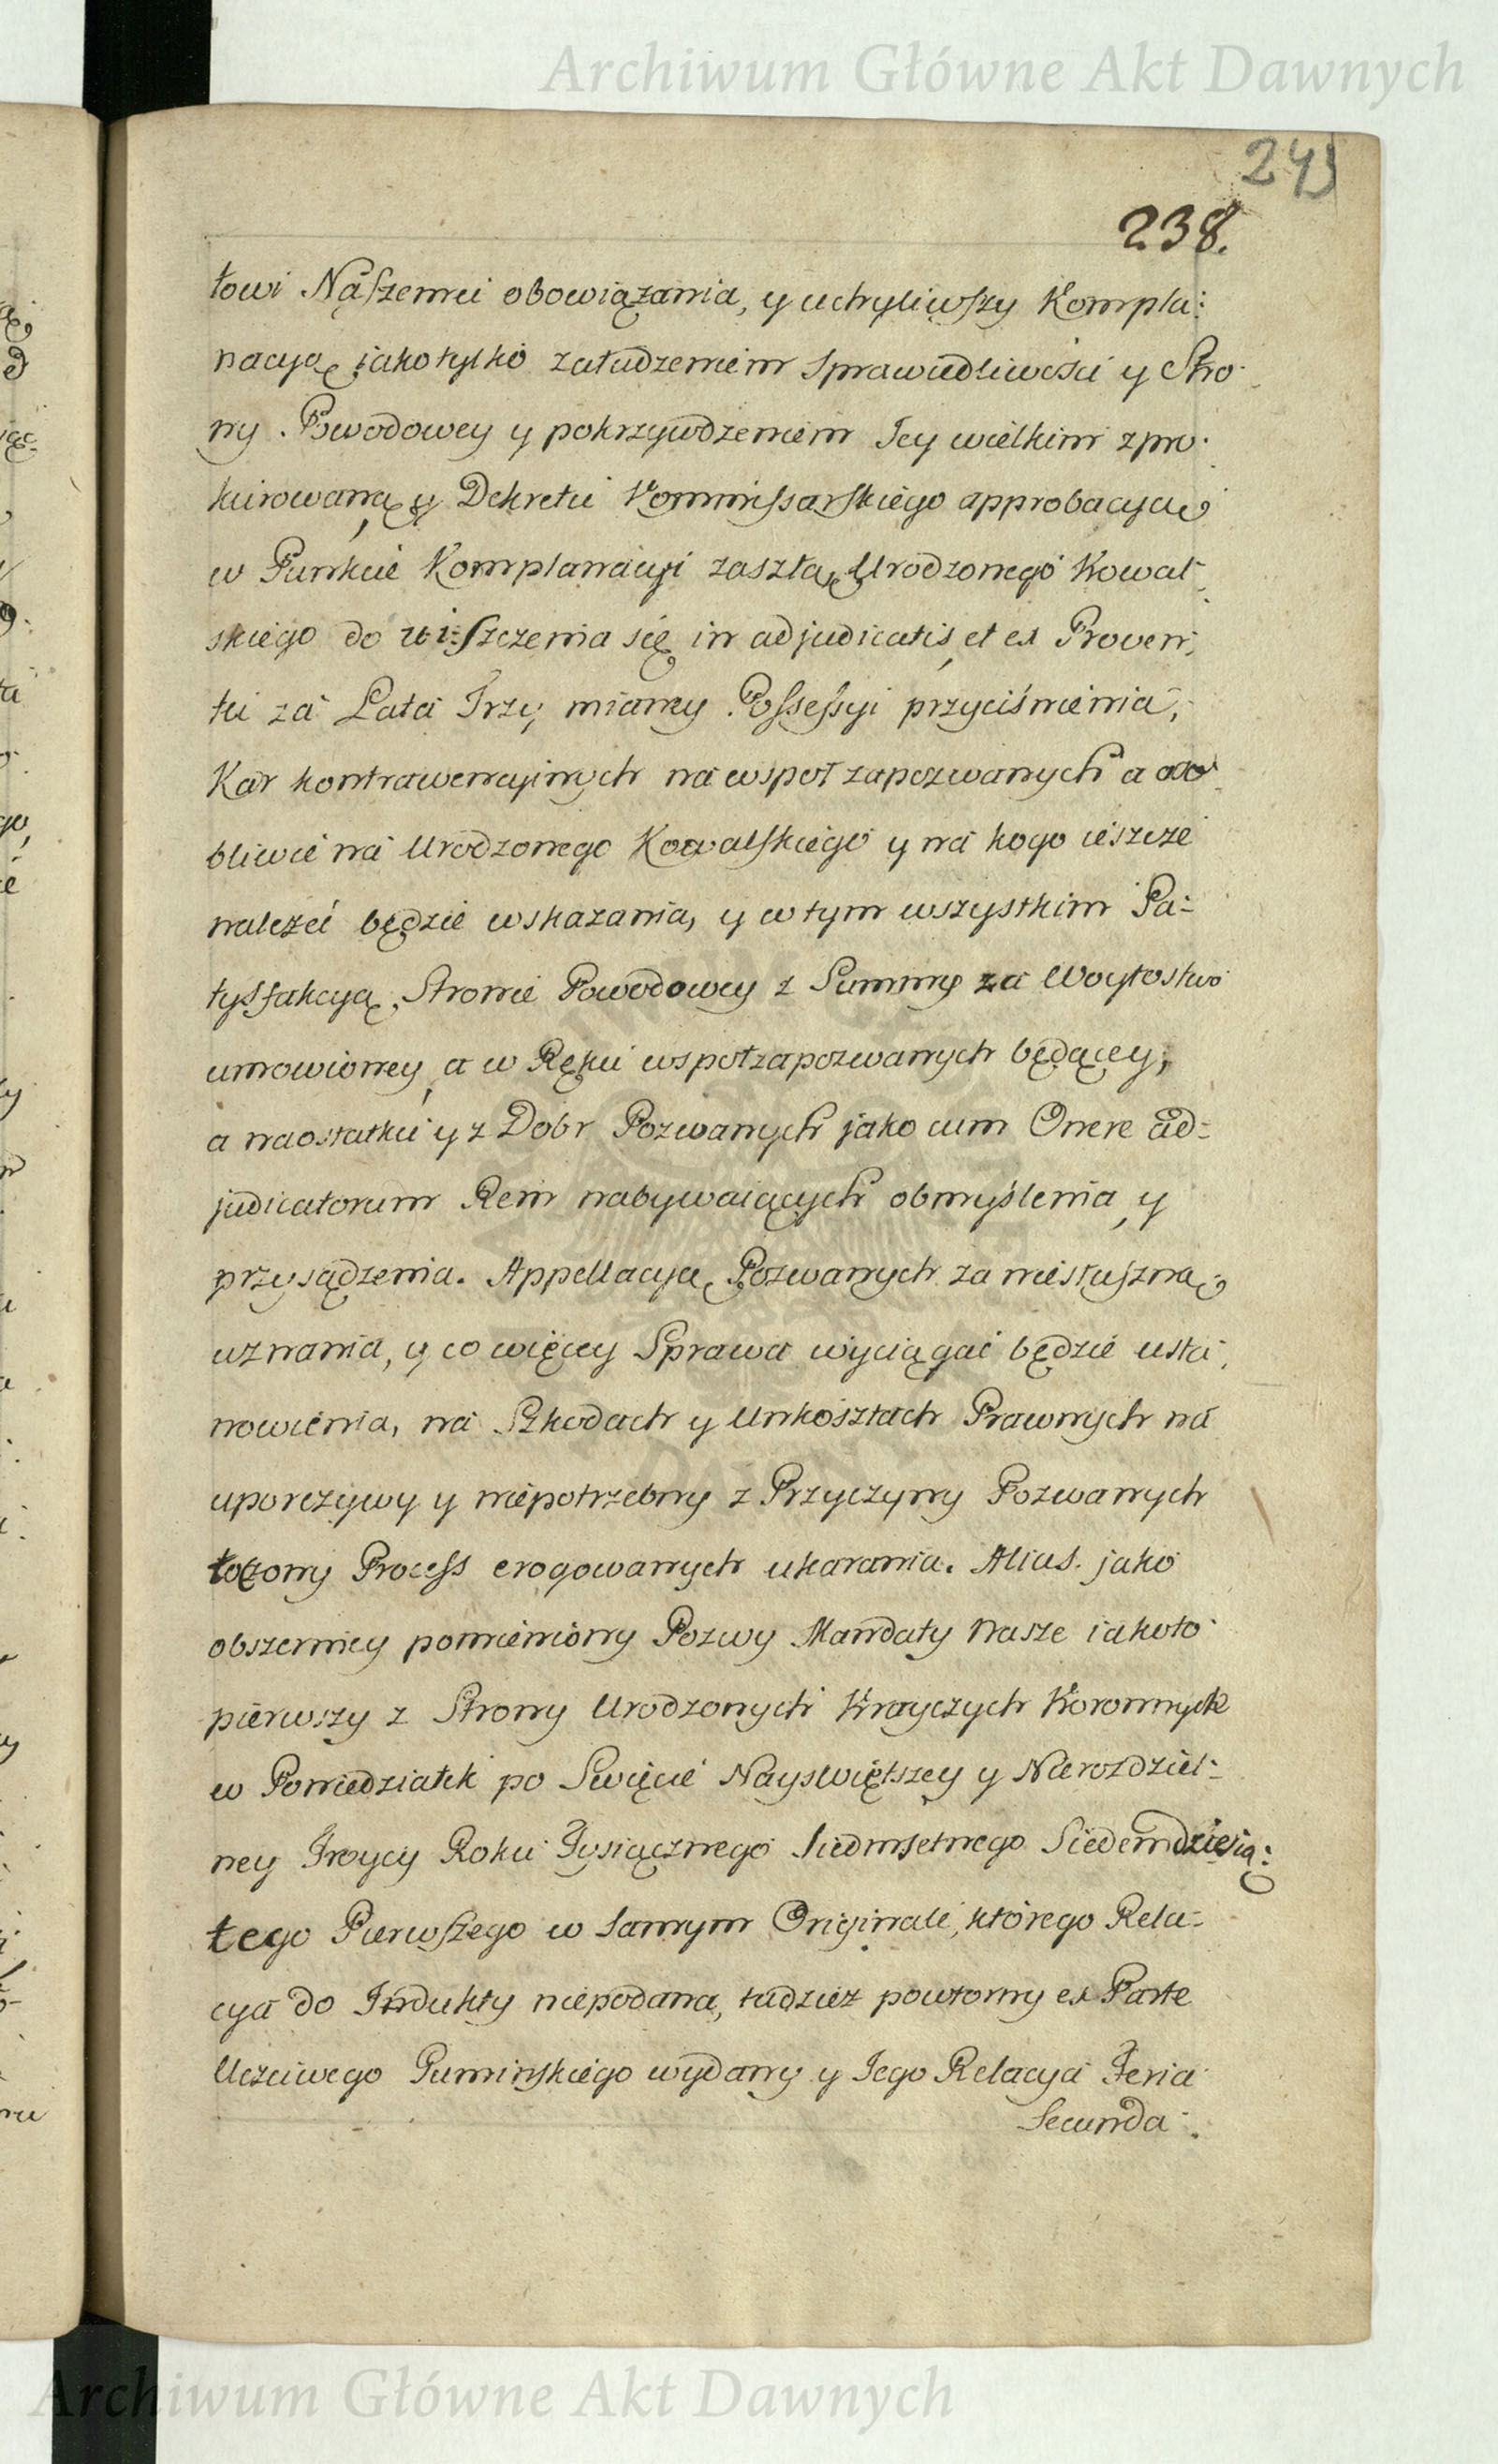 Archiwum Główne Akt Dawnych
243
238.
łowi Naszemu obowiązania, y uchyliwszy Kompla:
nacyą jako tylko załudzeniem Sprawiedliwości y Stro
ny Powodowey y pokrzywdzeniem Jey wielkim zpro
kurowaną y Dekretu Kommissarskiego approbacyą
w Punkcie Komplanacyi zaszłą, Urodzonego Kowal
skiego do uiszczenia się in adjudicatis, et ex Proven
tu za Lata Trzy mianey Possessyi przyciśnienia,
Kar kontrawencyinych na wspoł zapozwanych a oso
bliwie na Urodzonego Kowalskiego y na kogo ieszcze
należeć będzie wskazania, y w tym wszystkim Sa-
tysfakcyą Stronie Powodowey z Summy za Woytostwo
umowioney, a w Ręku wspołzapozwanych będącey,
a naostatku y z Dobr Pozwanych jako cum Onere ad-
judicatorum Rem nabywaiących obmyślenia, y
przysądzenia. Appellacyą Pozwanych za niesłuszną
uznania, y co więcey Sprawa wyciągać będzie usta
nowienia, na Szkodach y Unkosztach Prawnych na
uporczywy y niepotrzebny z Przyczyny Pozwanych
łożony Process erogowanych ukarania. Alias jako
obszerniey pomieniony Pozwy Mandaty Nasze iakoto
pierwszy z Strony Urodzonych Krayczych Koronnych
w Poniedziałek po Swięcie Nayswiętszey y Nierozdziel-
ney Troycy Roku Tysiącznego Siedmsetnego Siedemdziesią:
tego Pierwszego w samym Originale, którego Rela-
cya do Indukty niepodana, tudzież powtorny ex Parte
Uczciwego Puminskiego wydany y Jego Relacya Feria
Secunda
Archiwum Główne Akt Dawnych